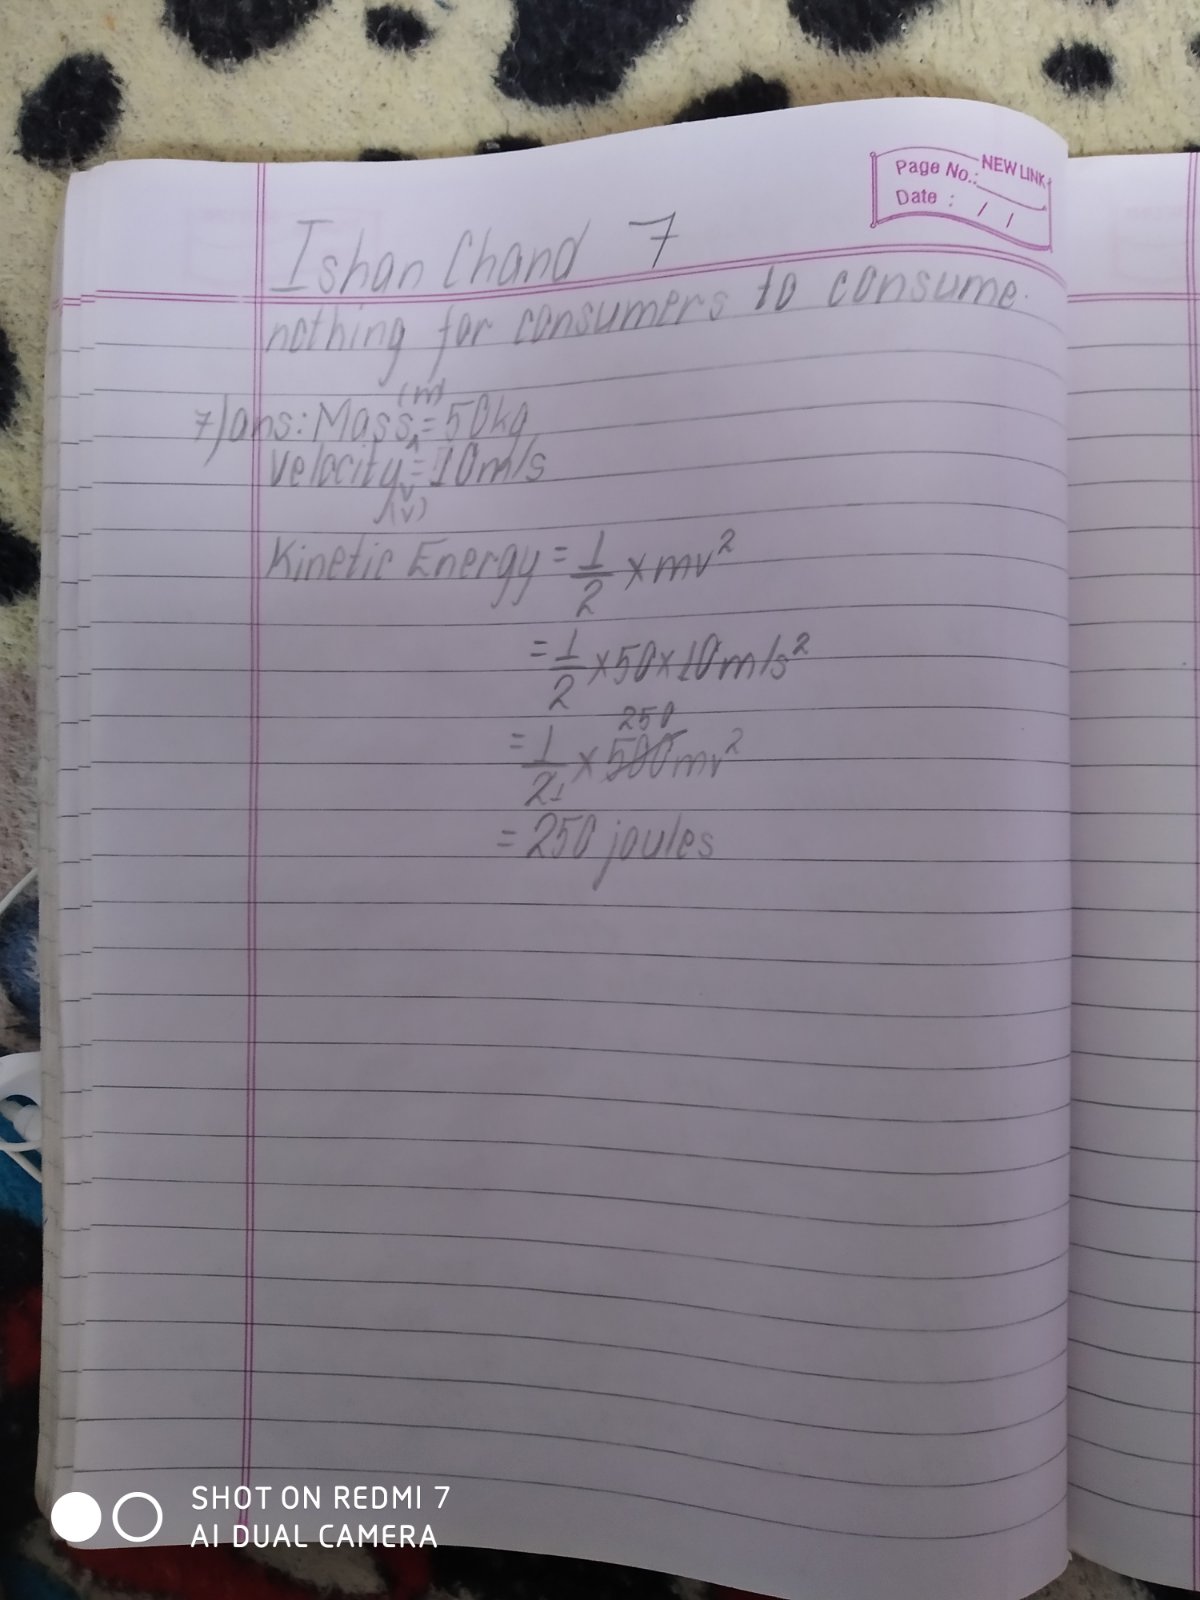 Page No.: NEW LINK
Date : / /
Ishan Chand 7
nothing for consumers to consume.
(m)
7) ans: Mass = 50kg
velocity = 10m/s
(v)
Kinetic Energy = 1/2 × mv²
= 1/2 × 50 × 10m/s²
250
= 1/21 × 500mv²
= 250 joules
SHOT ON REDMI 7
AI DUAL CAMERA